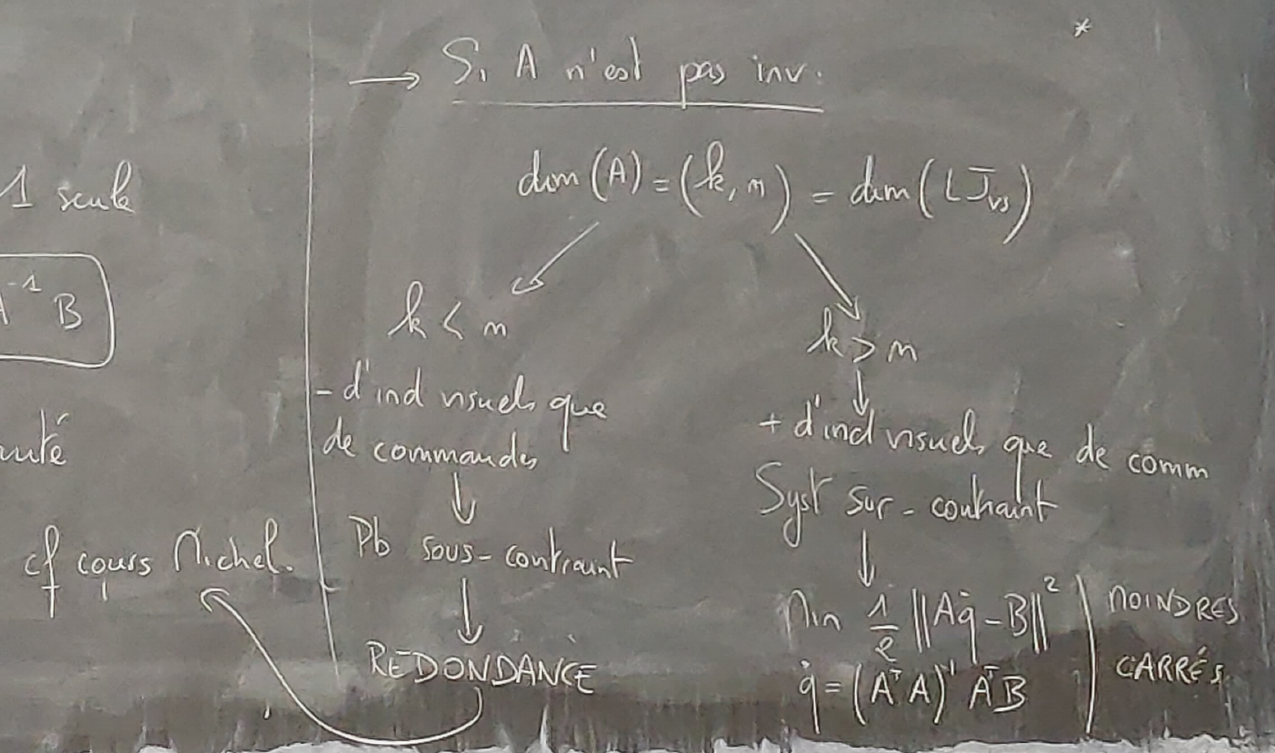 1 seule
A⁻¹ B
cf cours Michel.
*
→ Si A n'est pas inv.
dim (A) = (k, m) = dim (L J̄vs)
k < m
- d'ind visuels que
de commandes
↓
Pb sous-contraint
↓
REDONDANCE
k > m
↓
+ d'ind visuels que de comm
Syst sur-contraint
↓
Min 1/2 ||Aq̇ - B||²
q̇ = (AᵀA)⁻¹ AᵀB
MOINDRES
CARRÉS